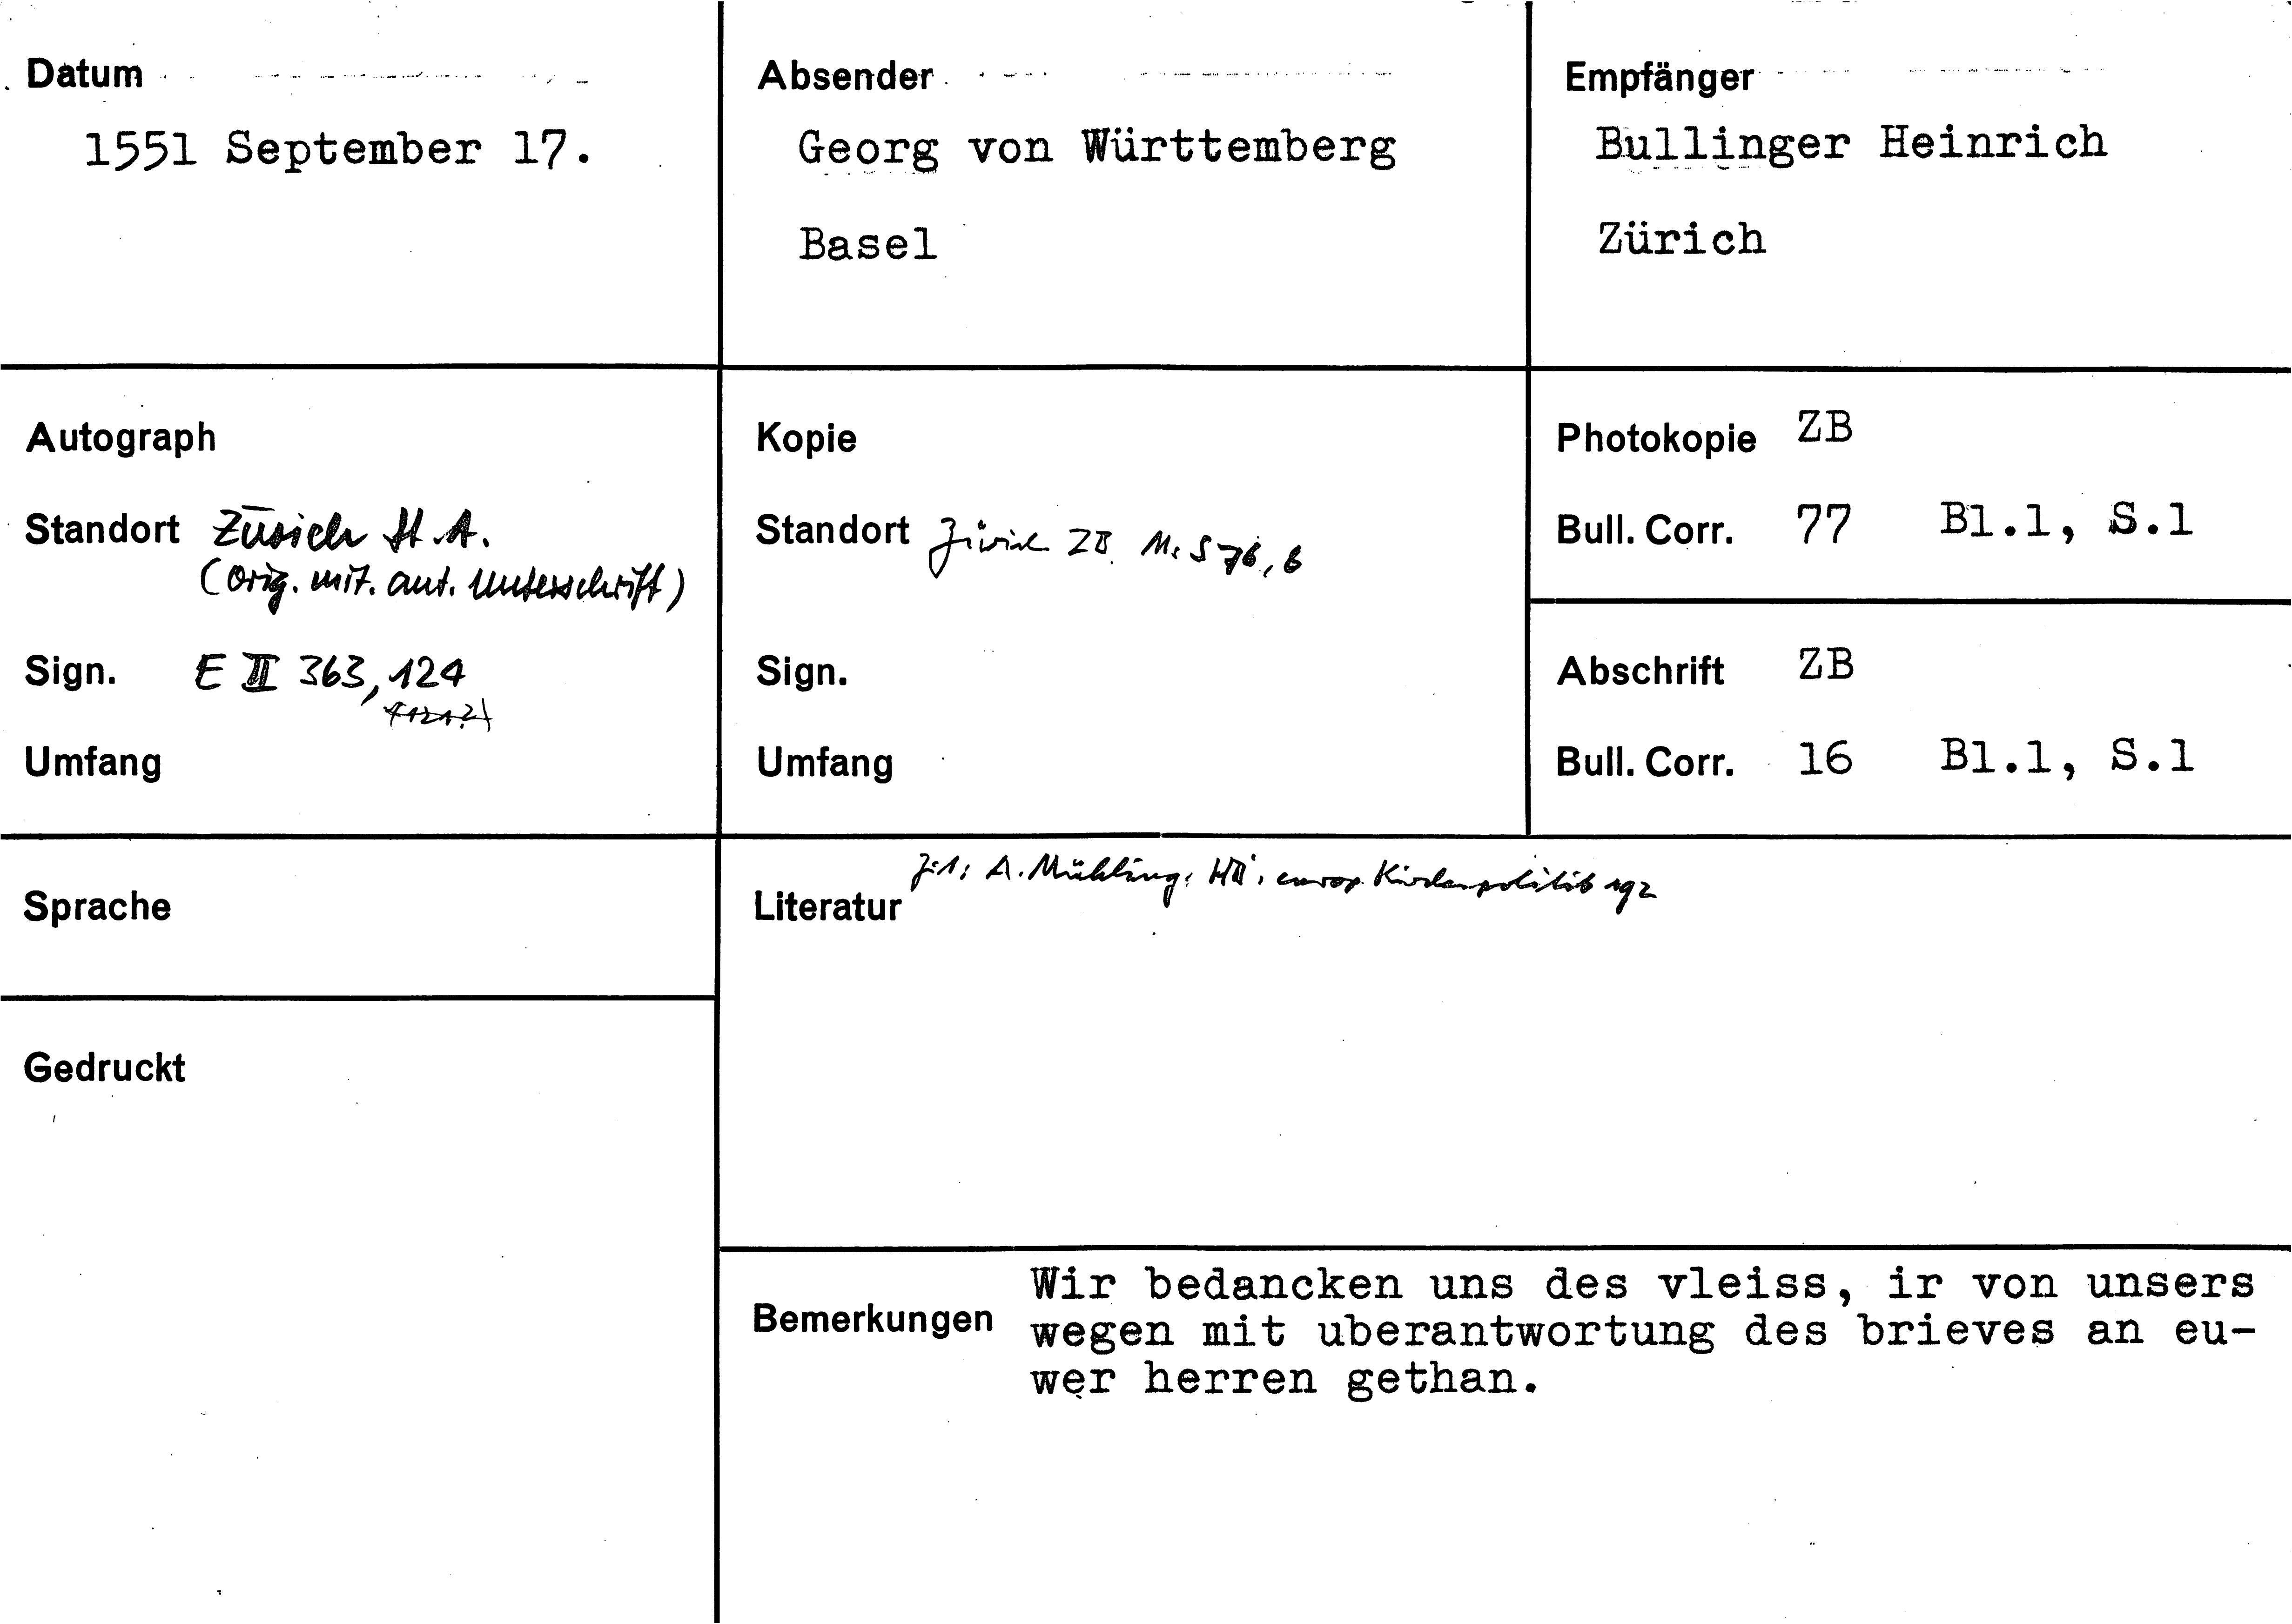 Datum
1551 September 17.
Absender
Georg von Württemberg
Basel
Empfänger
Bullinger Heinrich
Zürich
Autograph
Standort Zürich St.A.
(Orig. mit. aut. Unterschrift)
Sign. E II 363, 124
Umfang
Kopie
Standort Zürich ZB. Ms S 76, 6
Sign.
Umfang
Photokopie ZB
Bull. Corr. 77 Bl.1, S.1
Abschrift ZB
Bull. Corr. 16 Bl.1, S.1
Sprache
Gedruckt
Literatur A. Mühling, europ. Kirchenpolitik 192
Bemerkungen
Wir bedancken uns des vleiss, ir von unsers
wegen mit uberantwortung des brieves an eu-
wer herren gethan.